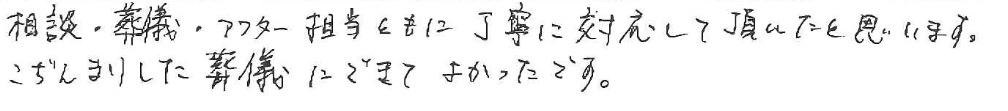 相談・葬儀・アフター担当ともに丁寧に対応して頂いたと思います。
こぢんまりした葬儀にできてよかったです。